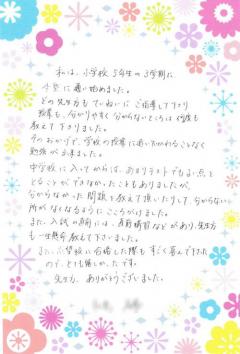 私は、小学校5年生の3学期に
塾に通い始めました。
どの先生方もていねいにご指導して下さり
授業も、分かりやすく分からないところは何度も
教えて下さりました。
そのおかげで、学校の授業に追いつかれることなく
勉強が出来ました。
中学校に入ってからは、あまりテストでもよい点を
とることができなかったこともありましたが、
分からなかった問題を教えて頂いたりして、分からない
所がなくなるようにこころがけました。
また、入試の前には、直前講習などがあり、先生方
も一生懸命教えて下さいました。
また、志望校に合格した際もすごく喜んで下さった
ので、とても嬉しかったです。
先生方、ありがとうございました。